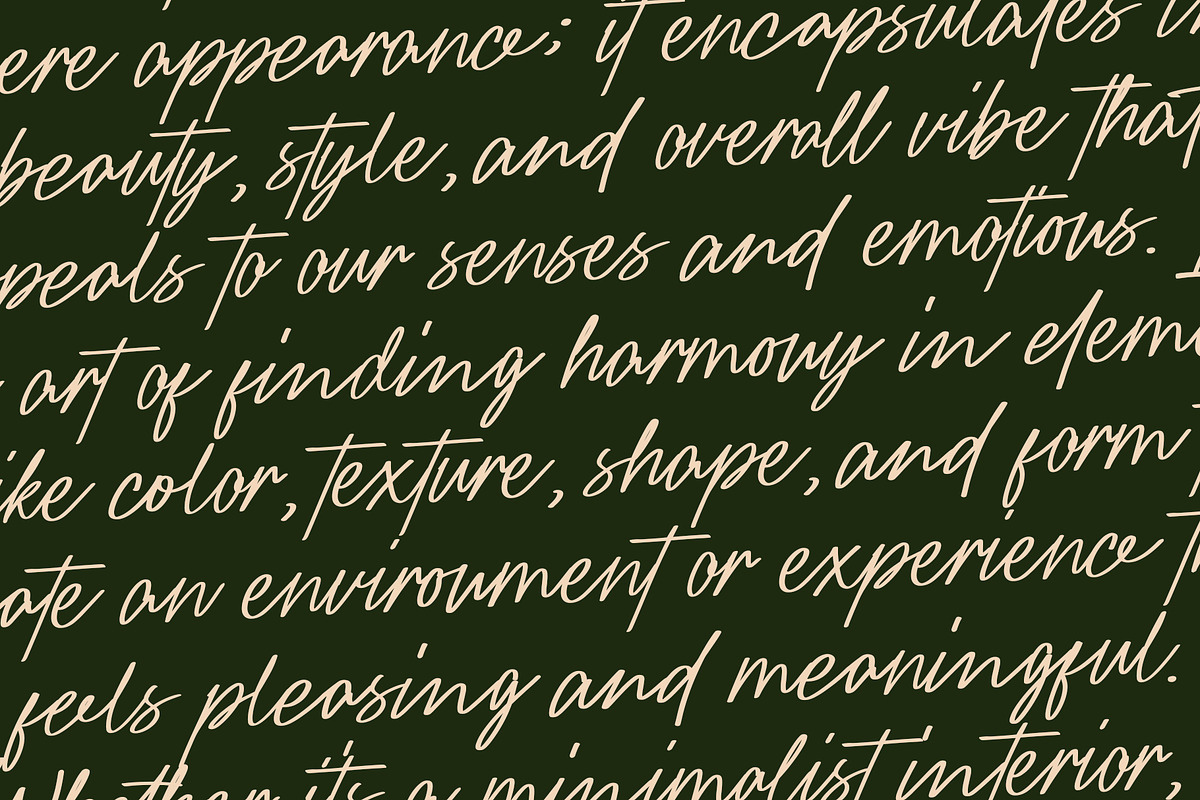 ere appearance; it encapsulates
beauty, style, and overall vibe that
peals to our senses and emotions.
art of finding harmony in eleme
ike color, texture, shape, and form
ate an environment or experience
feels pleasing and meaningful.
Whether it's a minimalist interior,